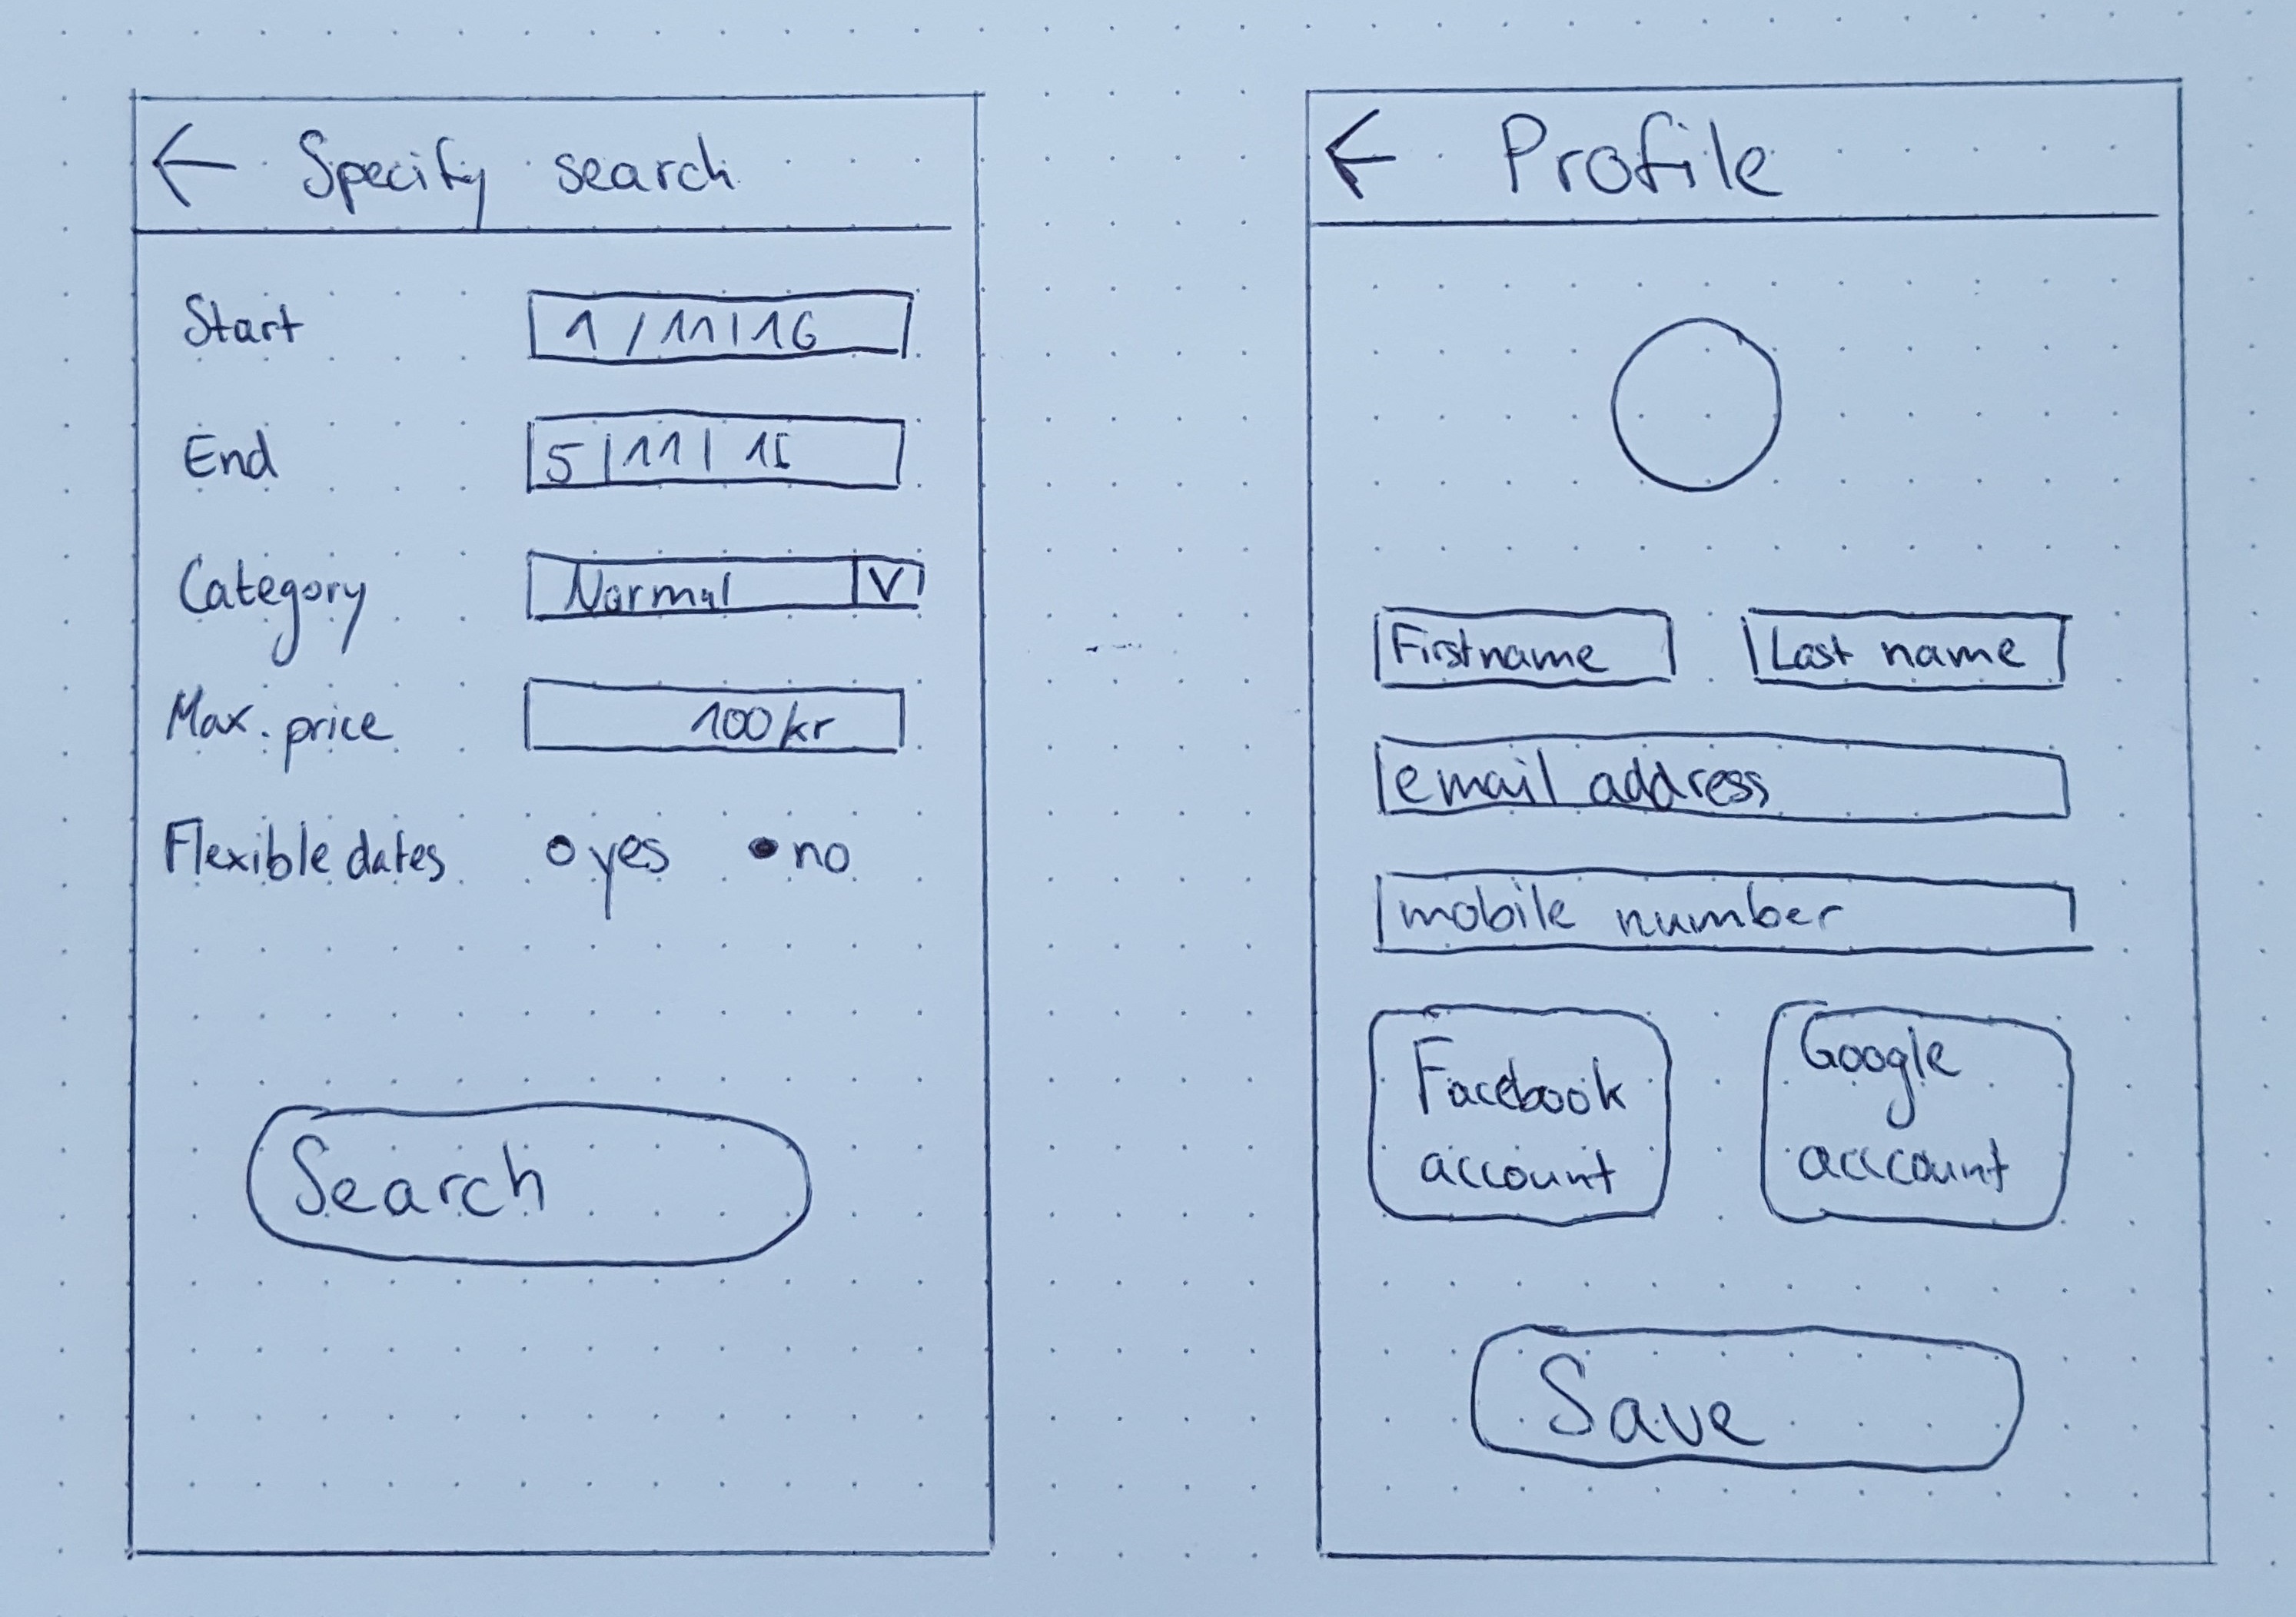 ← Specify search
Start 1/11/16
End 5/11/
Category Normal V
Max. price 100kr
Flexible dates yes no
Search
← Profile
Firstname Last name
email address
mobile number
Facebook
account
Google
acccount
Save